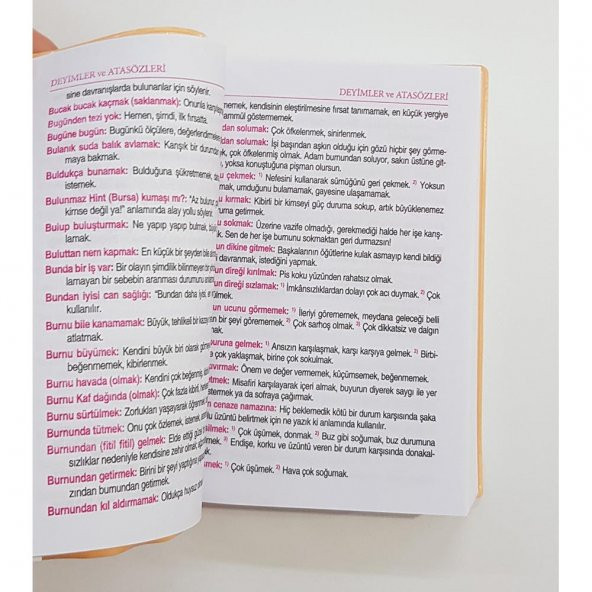 DEYİMLER ve ATASÖZLERİ
sine davranışlarda bulunanlar için söylenir.
Bucak bucak kaçmak (saklanmak): Onunla karşılaşm
Bugünden tezi yok: Hemen, şimdi, ilk fırsatta.
Bugüne bugün: Bugünkü ölçülere, değerlendirmelere
Bulanık suda balık avlamak: Karışık bir durumdan
maya bakmak.
Buldukça bunamak: Bulduğuna şükretmemek, da
istemek.
Bulunmaz Hint (Bursa) kumaşı mı?: "Az bulunur
kimse değil ya!" anlamında alay yollu söylenir.
Bulup buluşturmak: Ne yapıp yapıp bulmak,
lamak.
Buluttan nem kapmak: En küçük bir şeyden bile
Bunda bir iş var: Bir olayın şimdilik bilinmeyen bir
lamayan bir sebebin aranması durumunu anlatır
Bundan iyisi can sağlığı: "Bundan daha iyisi
kullanılır.
Burnu bile kanamamak: Büyük, tehlikeli bir kazayı
atlatmak.
Burnu büyümek: Kendini büyük biri olarak görmek
beğenmemek, kibirlenmek.
Burnu havada (olmak): Kendini çok beğenmiş,
Burnu Kaf dağında (olmak): Çok fazla kibirli,
Burnu sürtülmek: Zorlukları yaşayarak öğrenmek
Burnunda tütmek: Onu çok özlemek, istemek,
Burnundan (fitil fitil) gelmek: Elde ettiği güzel
sızlıklar nedeniyle kendisine zehir olmak,
Burnundan getirmek: Birini bir şeyi yaptığına
zından burnundan getirmek.
Burnundan kıl aldırmamak: Oldukça huysuz
DEYİMLER ve ATASÖZLERİ
nemek, kendisinin eleştirilmesine fırsat tanımamak, en küçük yergiye
ammül göstermemek.
dan solumak: Çok öfkelenmek, sinirlenmek.
dan solumak: İşi başından aşkın olduğu için gözü hiçbir şey görme-
k, çok öfkelenmiş olmak. Adam burnundan soluyor, sakın üstüne git-
, yoksa konuştuğuna pişman olursun.
u çekmek: 1) Nefesini kullanarak sümüğünü geri çekmek. 2) Yoksun
mak, umduğunu bulamamak, gayesine ulaşamamak.
u kırmak: Kibirli bir kimseyi güç duruma sokup, artık büyüklenemez
uruma getirmek.
u sokmak: Üzerine vazife olmadığı, gerekmediği halde her işe karış-
k. Sen de her işe burnunu sokmaktan geri durmazsın!
un dikine gitmek: Başkalarının öğütlerine kulak asmayıp kendi bildiği
i davranmak, istediğini yapmak.
un direği kırılmak: Pis koku yüzünden rahatsız olmak.
un direği sızlamak: 1) İmkânsızlıklardan dolayı çok acı duymak. 2) Çok
ülmek.
un ucunu görmemek: 1) İleriyi görememek, meydana geleceği belli
an bir şeyi görememek. 2) Çok sarhoş olmak. 3) Çok dikkatsiz ve dalgın
mak.
buruna gelmek: 1) Ansızın karşılaşmak, karşı karşıya gelmek. 2) Birbi-
e çok yaklaşmak, birine çok sokulmak.
ıvırmak: Önem ve değer vermemek, küçümsemek, beğenmemek.
etmek: Misafiri karşılayarak içeri almak, buyurun diyerek saygı ile yer
östermek ya da sofraya çağırmak.
n cenaze namazına: Hiç beklemedik kötü bir durum karşısında şaka
lu üzüntü belirtmek için ne yazık ki anlamında kullanılır.
silmek: 1) Çok üşümek, donmak. 2) Buz gibi soğumak, buz durumuna
k. 3) Endişe, korku ve üzüntü veren bir durum karşısında donakal-
smek: 1) Çok üşümek. 2) Hava çok soğumak.